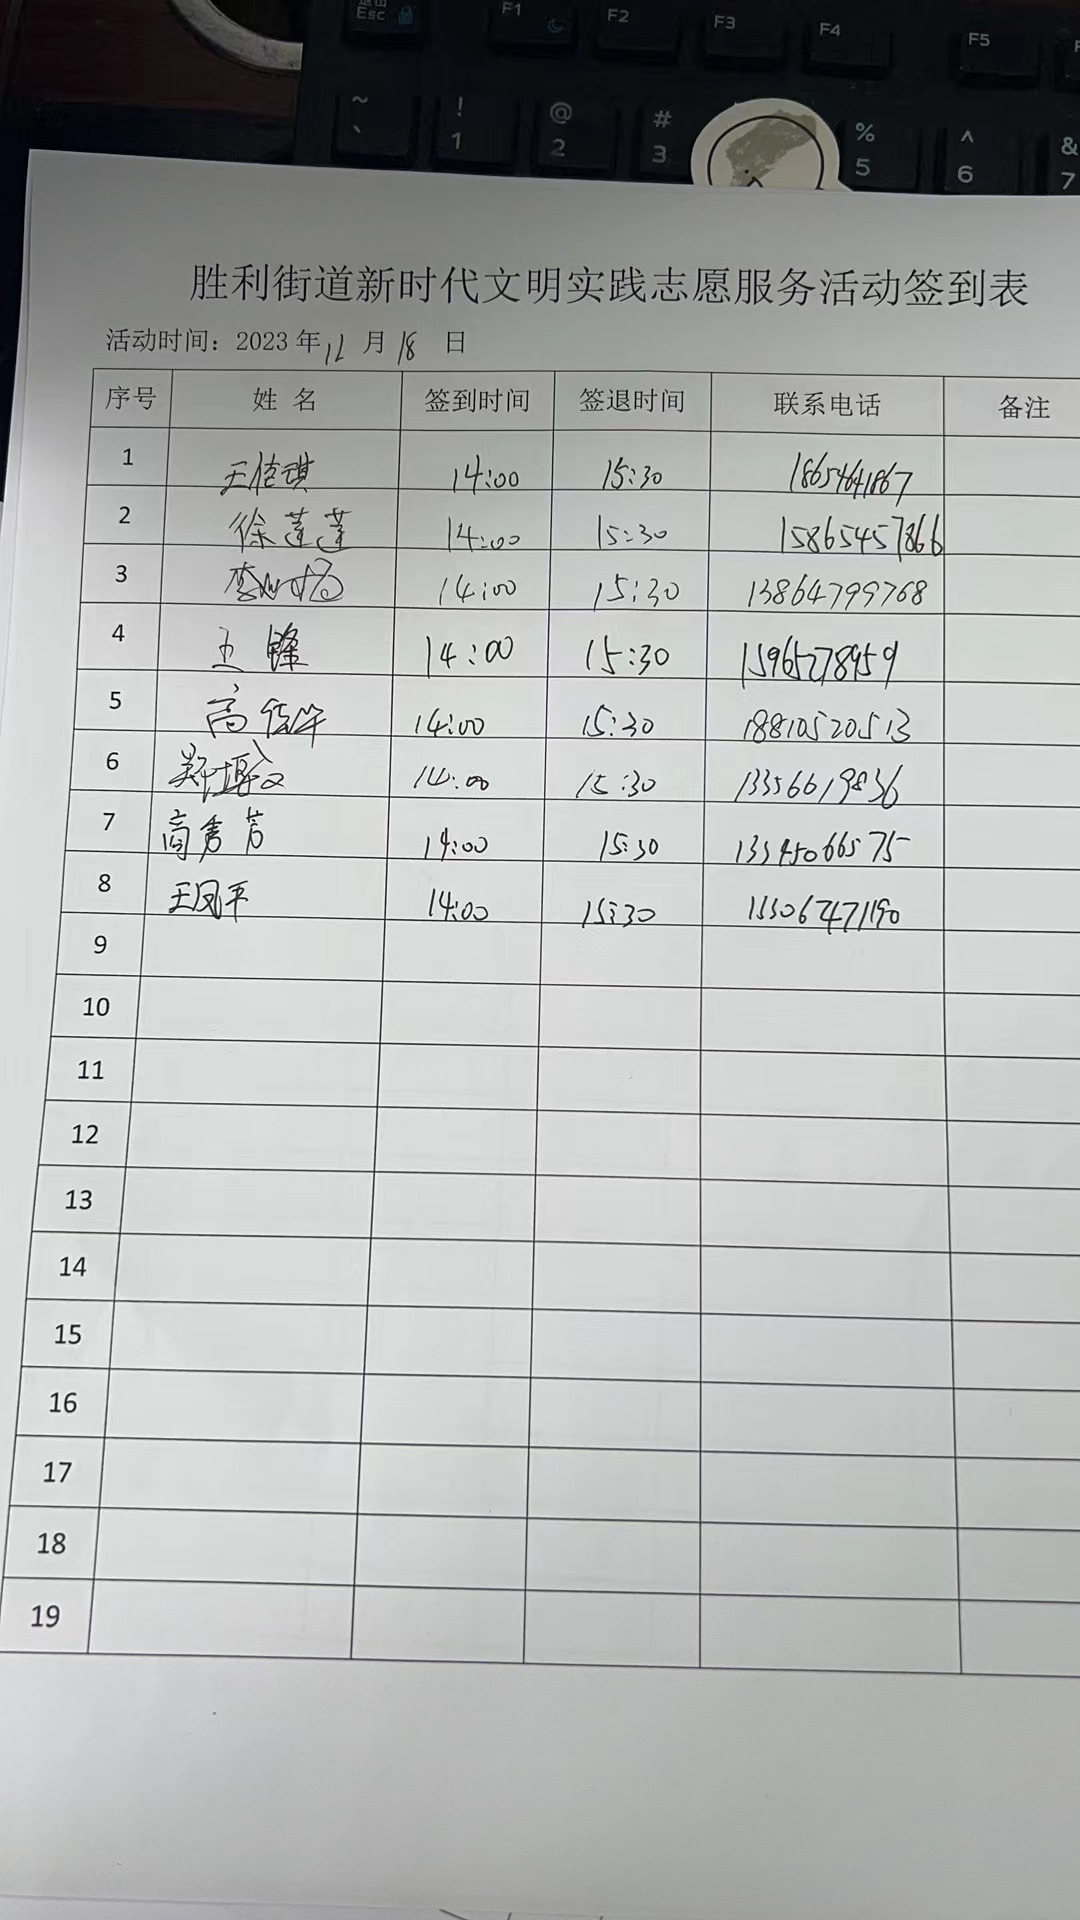 Esc F1 F2 F3 F4 F5
~ ! @ # % ^ &
` 1 2 3 5 6 7
胜利街道新时代文明实践志愿服务活动签到表
活动时间：2023 年 12 月 18 日
序号 姓 名 签到时间 签退时间 联系电话 备注
1 王佳琪 14:00 15:30
2 徐莲莲 14:00 15:30 15865457866
3 14:00 15:30 13864799768
4 王锋 14:00 15:30 15965278959
5 14:00 15:30 18810520513
6 14:00 15:30 13356619836
7 高秀芳 14:00 15:30 13345066575
8 王凤平 14:00 15:30
9
10
11
12
13
14
15
16
17
18
19